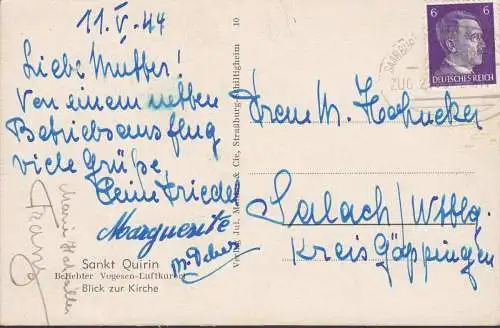 11.V.44
Liebe Mutter!
Von einem netten
Betriebsausflug
viele Grüße,
Deine Friedel
Marguerite
Franz
Sankt Quirin
Beliebter Vogesen-Luftkurort
Blick zur Kirche
Verlag Jul. & Cie, Straßburg-Schiltigheim
10
6 6
DEUTSCHES REICH
ZUG
Frau M.
Salach/Wttbg.
Kreis Göppingen